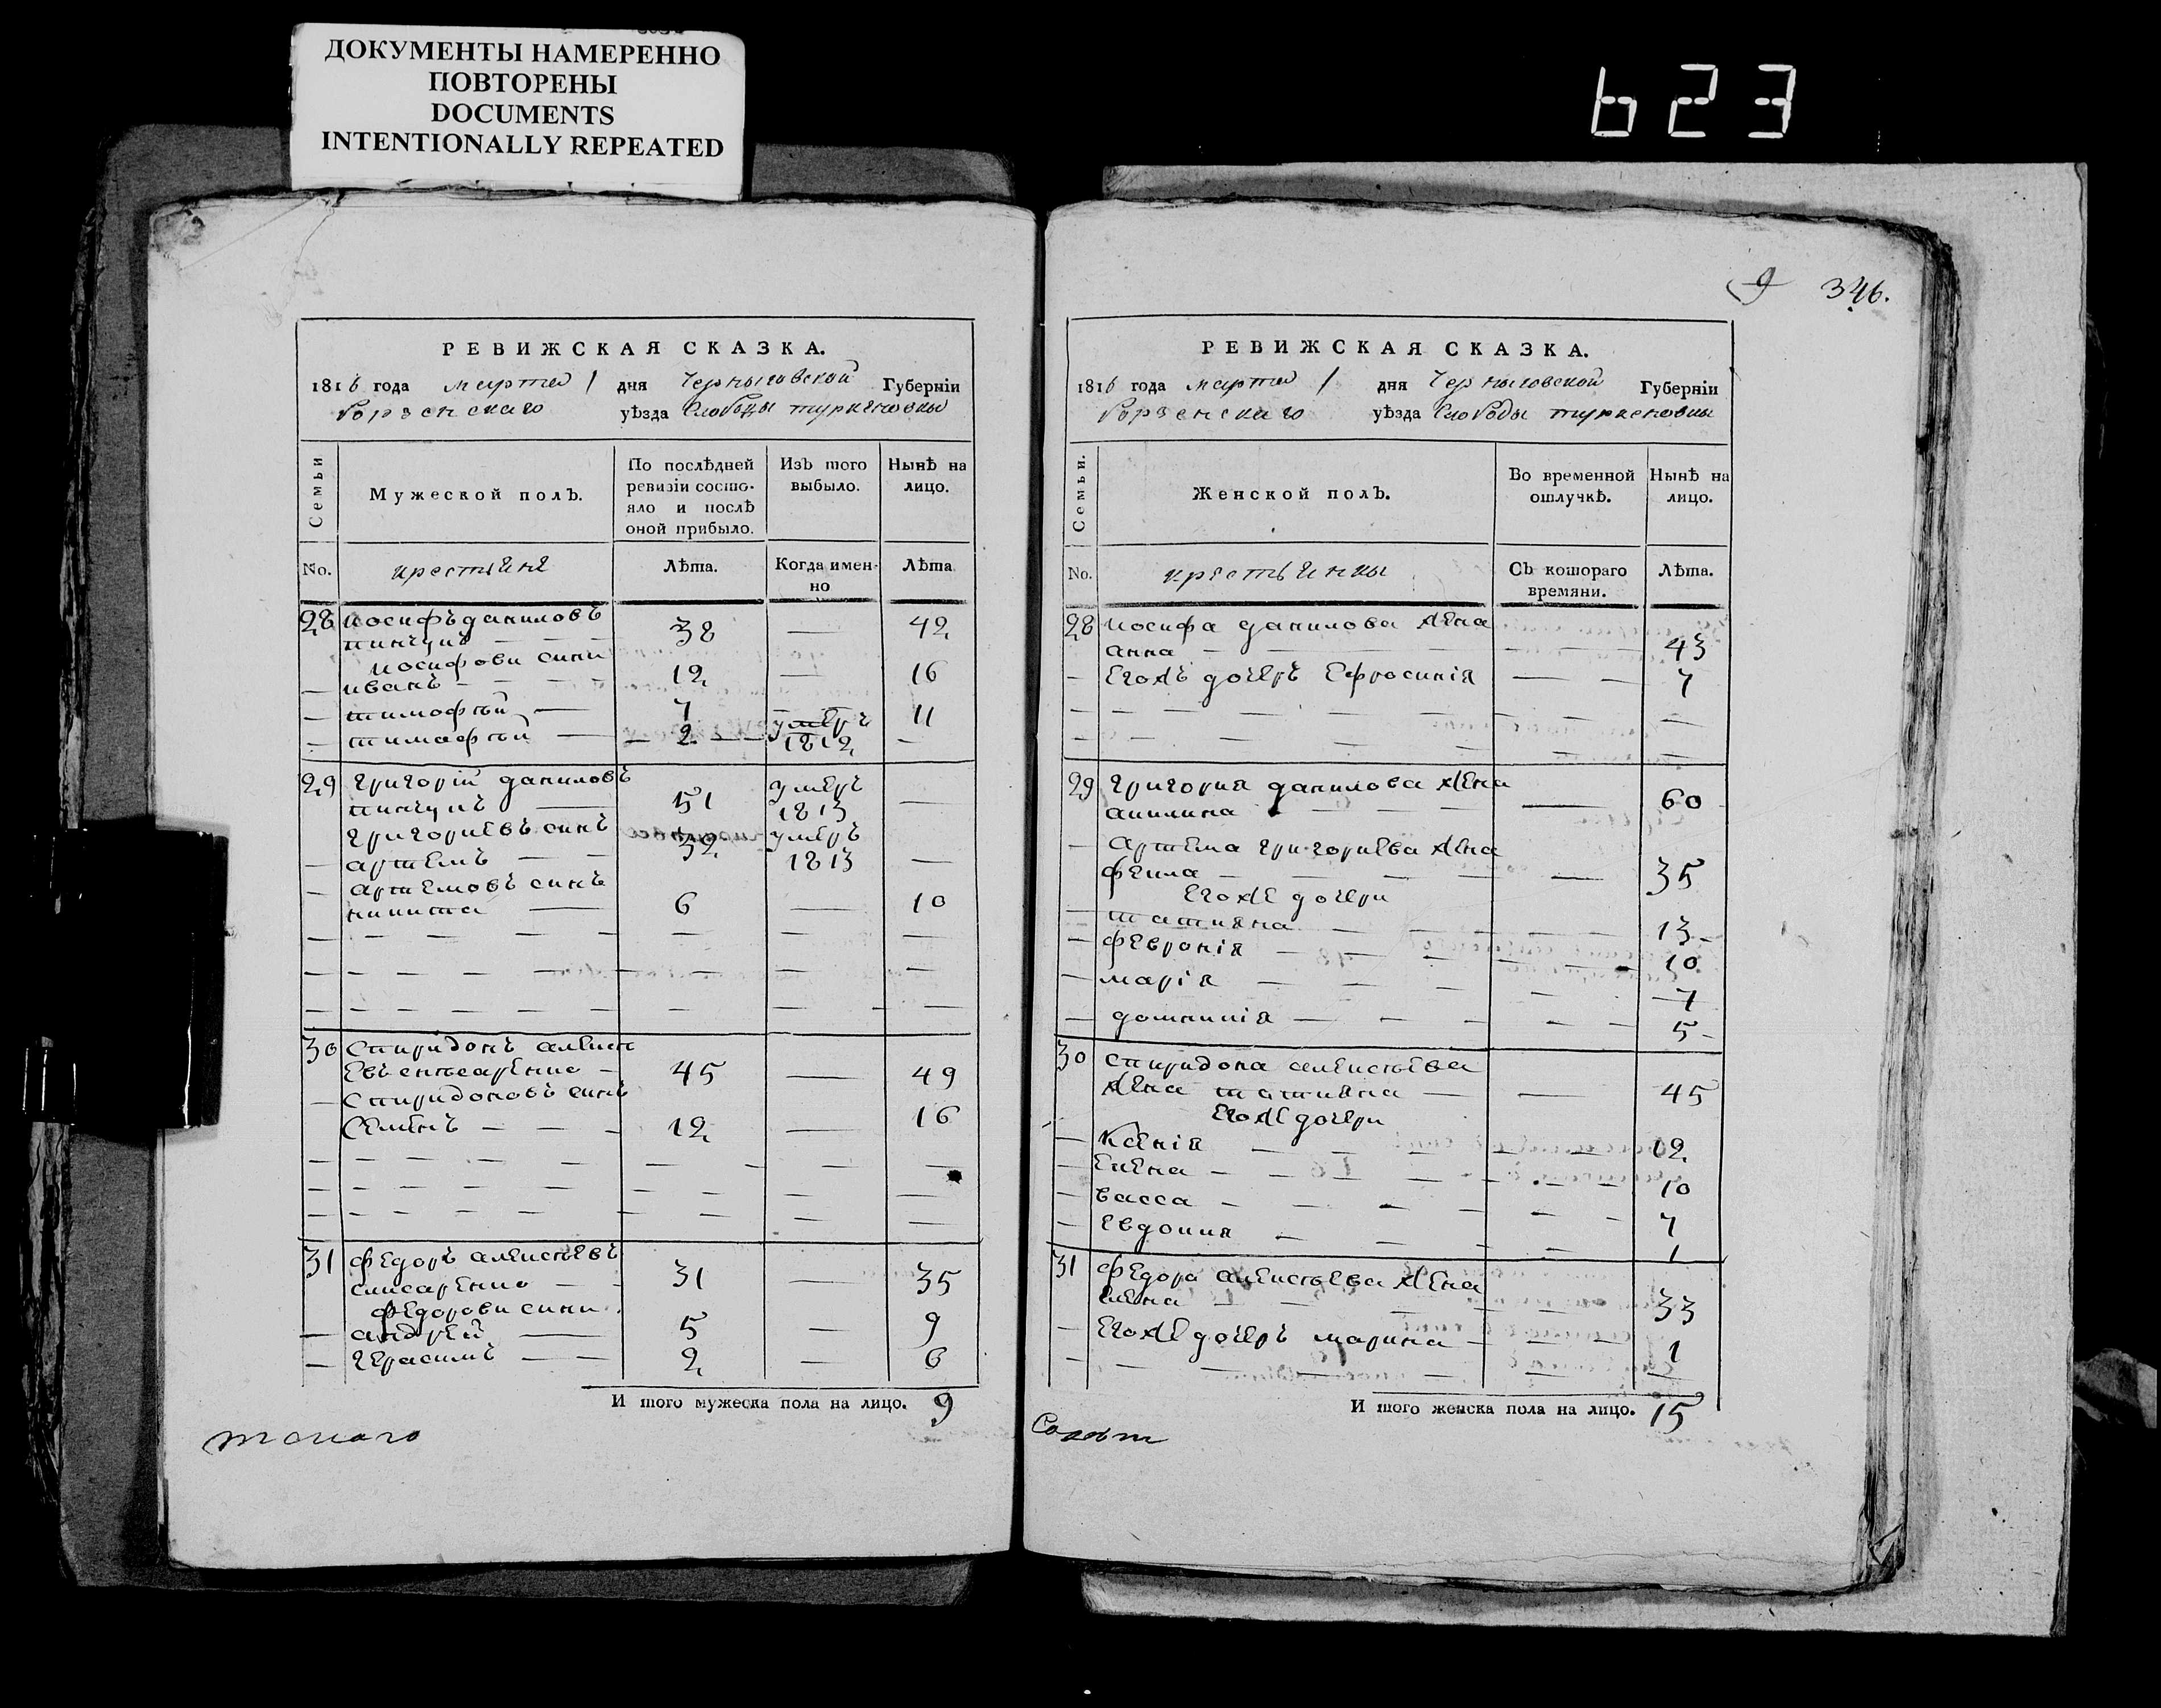 ДОКУМЕНТЫ НАМЕРЕННО
ПОВТОРЕНЫ
DOCUMENTS
INTENTIONALLY REPEATED
623
РЕВИЖСКАЯ СКАЗКА.
1816 года марта 1 дня Черныговской Губерніи
Борзенскаго уѣзда Слободы
Семьи
Мужеской полъ.
По послѣдней ревизіи состояло и послѣ оной прибыло.
Изъ того выбыло.
Нынѣ на лицо.
No. крестяне Лѣта. Когда именно Лѣта
28 иосифъ даниловъ
38 — 42
иосифови сини
— иванъ — 12 — 16
— тимофѣй — 7 — 11
— тимофѣй — 2 — умеръ 1812 —
29 григорій даниловъ
51 умеръ 1813 —
григориевъ синъ
— артемъ — 32 умеръ 1813 —
— артемовъ синъ
никита — 6 — 10
30 Спиридонъ алекси
45 — 49
— Спиридоновъ синъ
Семенъ — 12 — 16
31 федоръ алексѣевъ
слисаренко — 31 — 35
федорови сини
— андрей — 5 — 9
— герасимъ — 2 — 6
И того мужеска пола на лицо. 9
9 346.
РЕВИЖСКАЯ СКАЗКА.
1816 года марта 1 дня Черныговской Губерніи
Борзенскаго уѣзда Слободы
Семьи.
Женской полъ.
Во временной отлучкѣ.
Нынѣ на лицо.
No. крестьянки Съ котораго времяни. Лѣта.
28 иосифа данилова жена
анна — 43
— Егожъ дочеръ Ефросинія — 7
29 григория данилова жена
акилина — 60
— Артема григориева жена
фекла — 35
Егоже дочери
— татияна — 13
— февронія — 10
— марія — 7
— домникія — 5
30 спиридона алексѣева
жена татияна — 45
Егоже дочери
— Ксенія — 12
— Елена — 10
— васса — 7
— Евдокия — 1
31 федора алексѣева жена
33
— Егоже дочеръ марина — 1
И того женска пола на лицо. 15